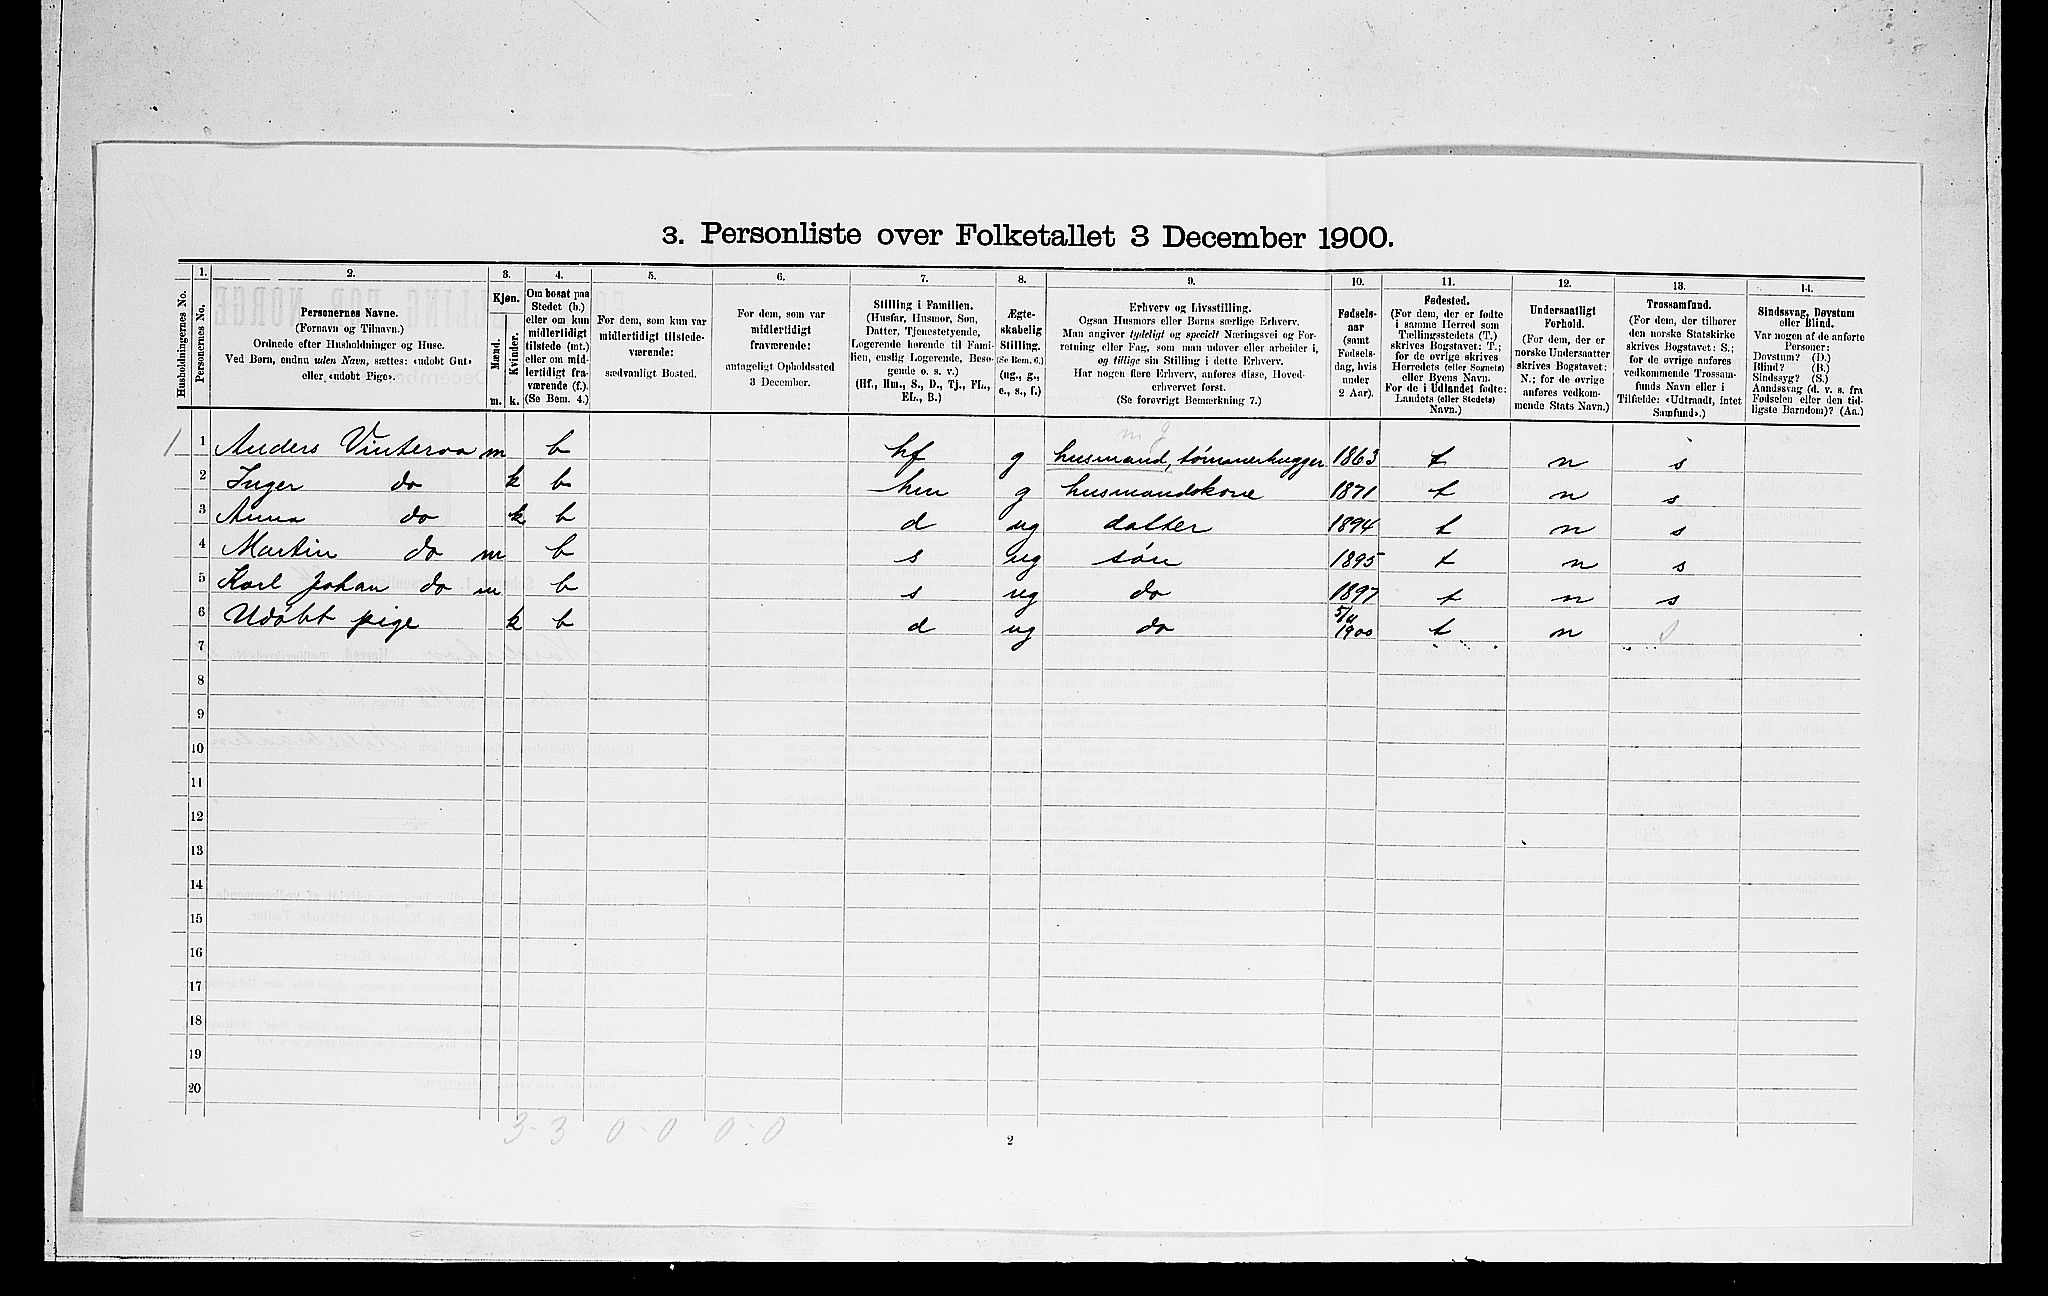 3. Personliste over Folketallet 3 December 1900.
Husholdningernes No.
1.
Personernes No.
2.
Personernes Navne.
(Fornavn og Tilnavn.)
Ordnede efter Husholdninger og Huse.
Ved Børn, endnu uden Navn, sættes: «udøbt Gut»
eller «udøbt Pige».
3.
Kjøn.
Mænd.
Kvinder.
m.
k.
4.
Om bosat paa
Stedet (b.)
eller om kun
midlertidigt
tilstede (mt.)
eller om mid-
lertidigt fra-
værende (f.)
(Se Bem. 4.)
5.
For dem, som kun var
midlertidigt tilstede-
værende:
sædvanligt Bosted.
6.
For dem, som var
midlertidigt
fraværende:
antageligt Opholdssted
3 December.
7.
Stilling i Familien.
(Husfar, Husmor, Søn,
Datter, Tjenestetyende,
Logerende hørende til Fami-
lien, enslig Logerende, Besø-
gende o. s. v.)
(Hf., Hm., S., D., Tj., FL.,
EL., B.)
8.
Ægte-
skabelig
Stilling.
(Se Bem. 6.)
(ug., g.,
e., s., f.)
9.
Erhverv og Livsstilling.
Ogsaa Husmors eller Børns særlige Erhverv.
Man angiver tydeligt og specielt Næringsvei og For-
retning eller Fag, som man udøver eller arbeider i,
og tillige sin Stilling i dette Erhverv.
Har nogen flere Erhverv, anføres disse, Hoved-
erhvervet først.
(Se forøvrigt Bemærkning 7.)
10.
Fødsels-
aar
(samt
Fødsels-
dag, hvis
under
2 Aar).
11.
Fødested.
(For dem, der er fødte
i samme Herred som
Tællingsstedets (T.)
skrives Bogstavet: T.;
for de øvrige skrives
Herredets (eller Sognets)
eller Byens Navn.
For de i Udlandet fødte:
Landets (eller Stedets)
Navn.)
12.
Undersaatligt
Forhold.
(For dem, der er
norske Undersaatter
skrives Bogstavet:
N.; for de øvrige
anføres vedkom-
mende Stats Navn.)
13.
Trossamfund.
(For dem, der tilhører
den norske Statskirke
skrives Bogstavet: S.;
for de øvrige anføres
vedkommende Trossam-
funds Navn eller i
Tilfælde: «Udtraadt, intet
Samfund».)
14.
Sindssvag, Døvstum
eller Blind.
Var nogen af de anførte
Personer:
Døvstum? (D.)
Blind? (B.)
Sindssyg? (S.)
Aandssvag (d. v. s. fra
Fødselen eller den tid-
ligste Barndom)? (Aa.)
m g
1 1 Anders Vinteroa m b hf g husmand, tømmerhugger 1863 t n s
2 Inger do k b hm g husmandskone 1871 t n s
3 Anna do k b d ug datter 1894 t n s
4 Martin do m b s ug søn 1895 t n s
5 Karl Johan do m b s ug do 1897 t n s
6 Udøbt pige k b d ug do 5/11 1900 t n
7
8
9
10
11
12
13
14
15
16
17
18
19
20
3-3 0-0 0-0
2